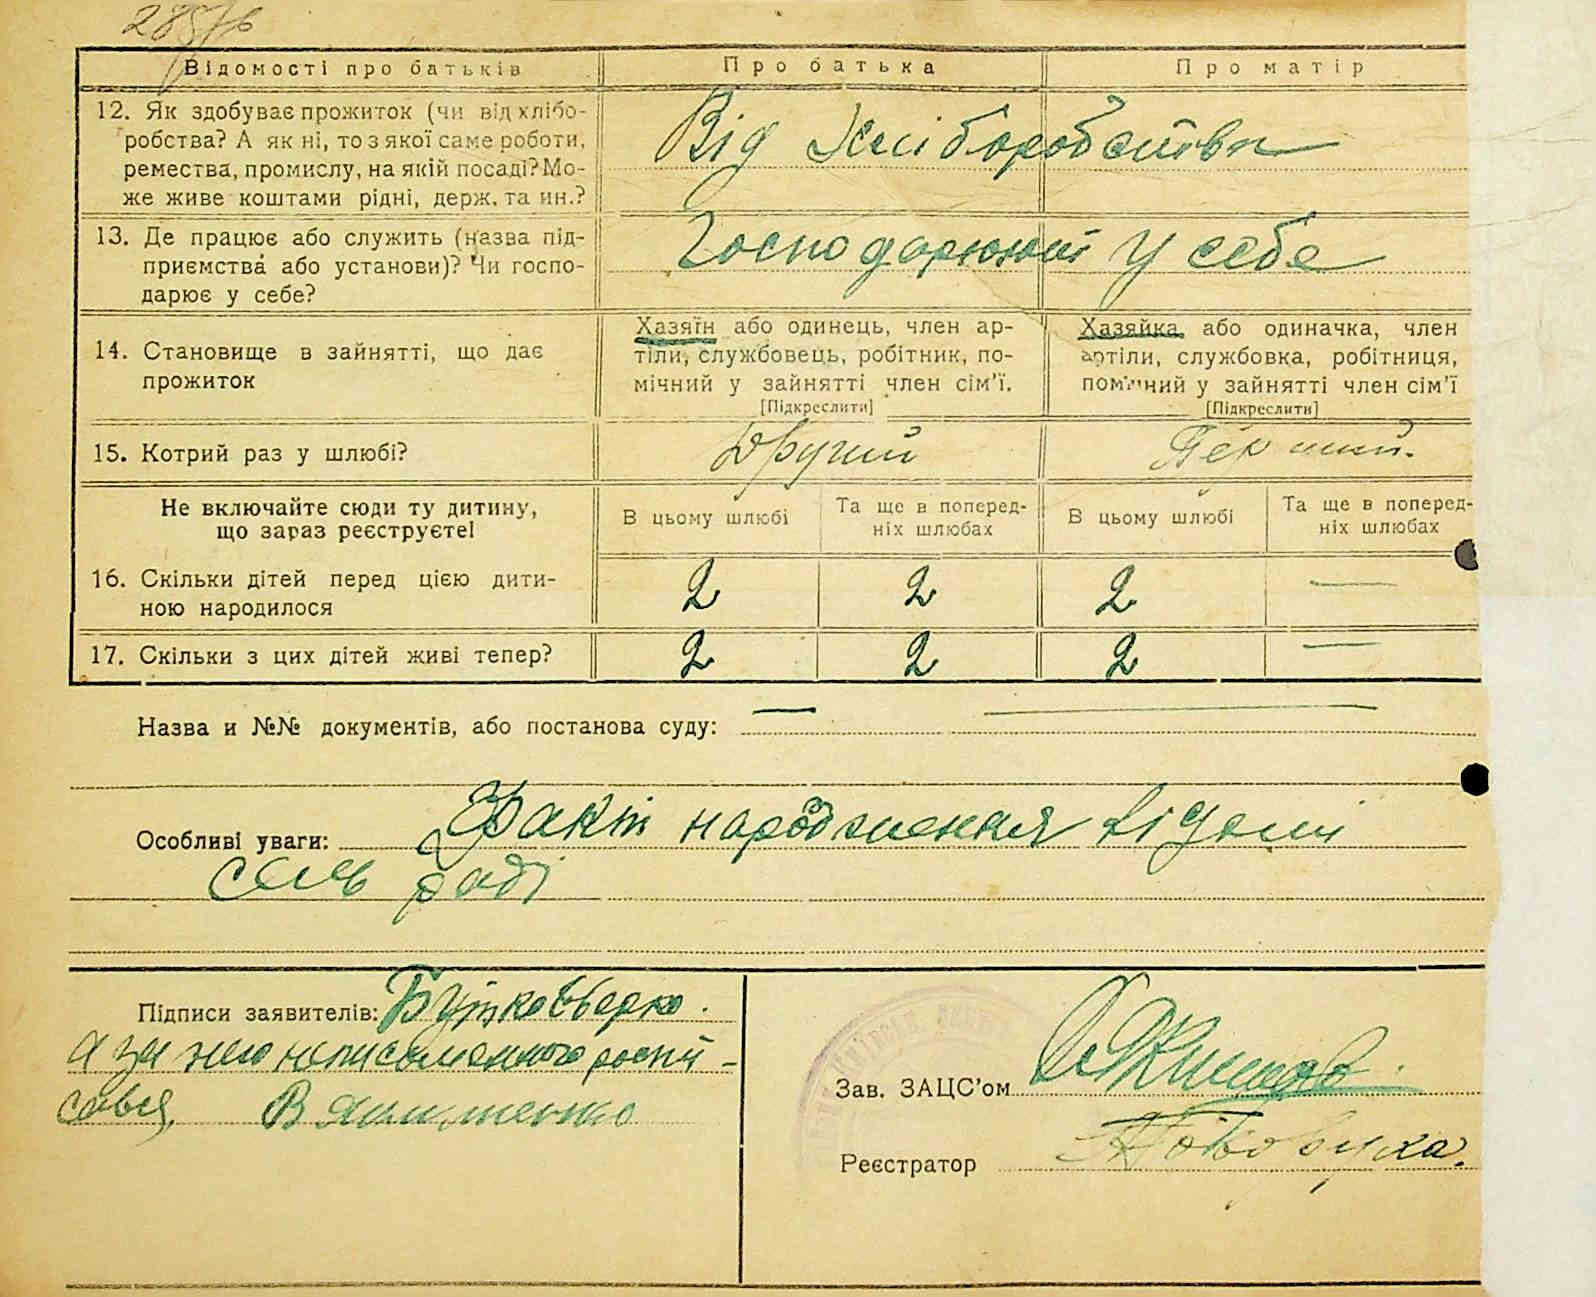 28576
Відомості про батьків Про батька Про матір
12. Як здобуває прожиток (чи від хлібо-
робства? А як ні, то з якої саме роботи,
ремества, промислу, на якій посаді? Мо-
же живе коштами рідні, держ. та ин.?
Від хліборобства
13. Де працює або служить (назва під-
приємства або установи)? Чи госпо-
дарює у себе?
Господарюют у себе
14. Становище в зайнятті, що дає
прожиток
Хазяїн або одинець, член ар-
тіли, службовець, робітник, по-
мічний у зайнятті член сім'ї.
[Підкреслити]
Хазяйка або одиначка, член
артіли, службовка, робітниця,
помічний у зайнятті член сім'ї
[Підкреслити]
15. Котрий раз у шлюбі? Другий Перший.
Не включайте сюди ту дитину,
що зараз реєструєте!
В цьому шлюбі Та ще в поперед-
ніх шлюбах В цьому шлюбі Та ще в поперед-
ніх шлюбах
16. Скільки дітей перед цією дити-
ною народилося
2 2 2 —
17. Скільки з цих дітей живі тепер? 2 2 2 —
Назва и №№ документів, або постанова суду: — —
Особливі уваги: Факт народження відомий
сель раді
Підписи заявителів: Бутко
а за него неписьменного роспи-
сався
Зав. ЗАЦС'ом
Реєстратор